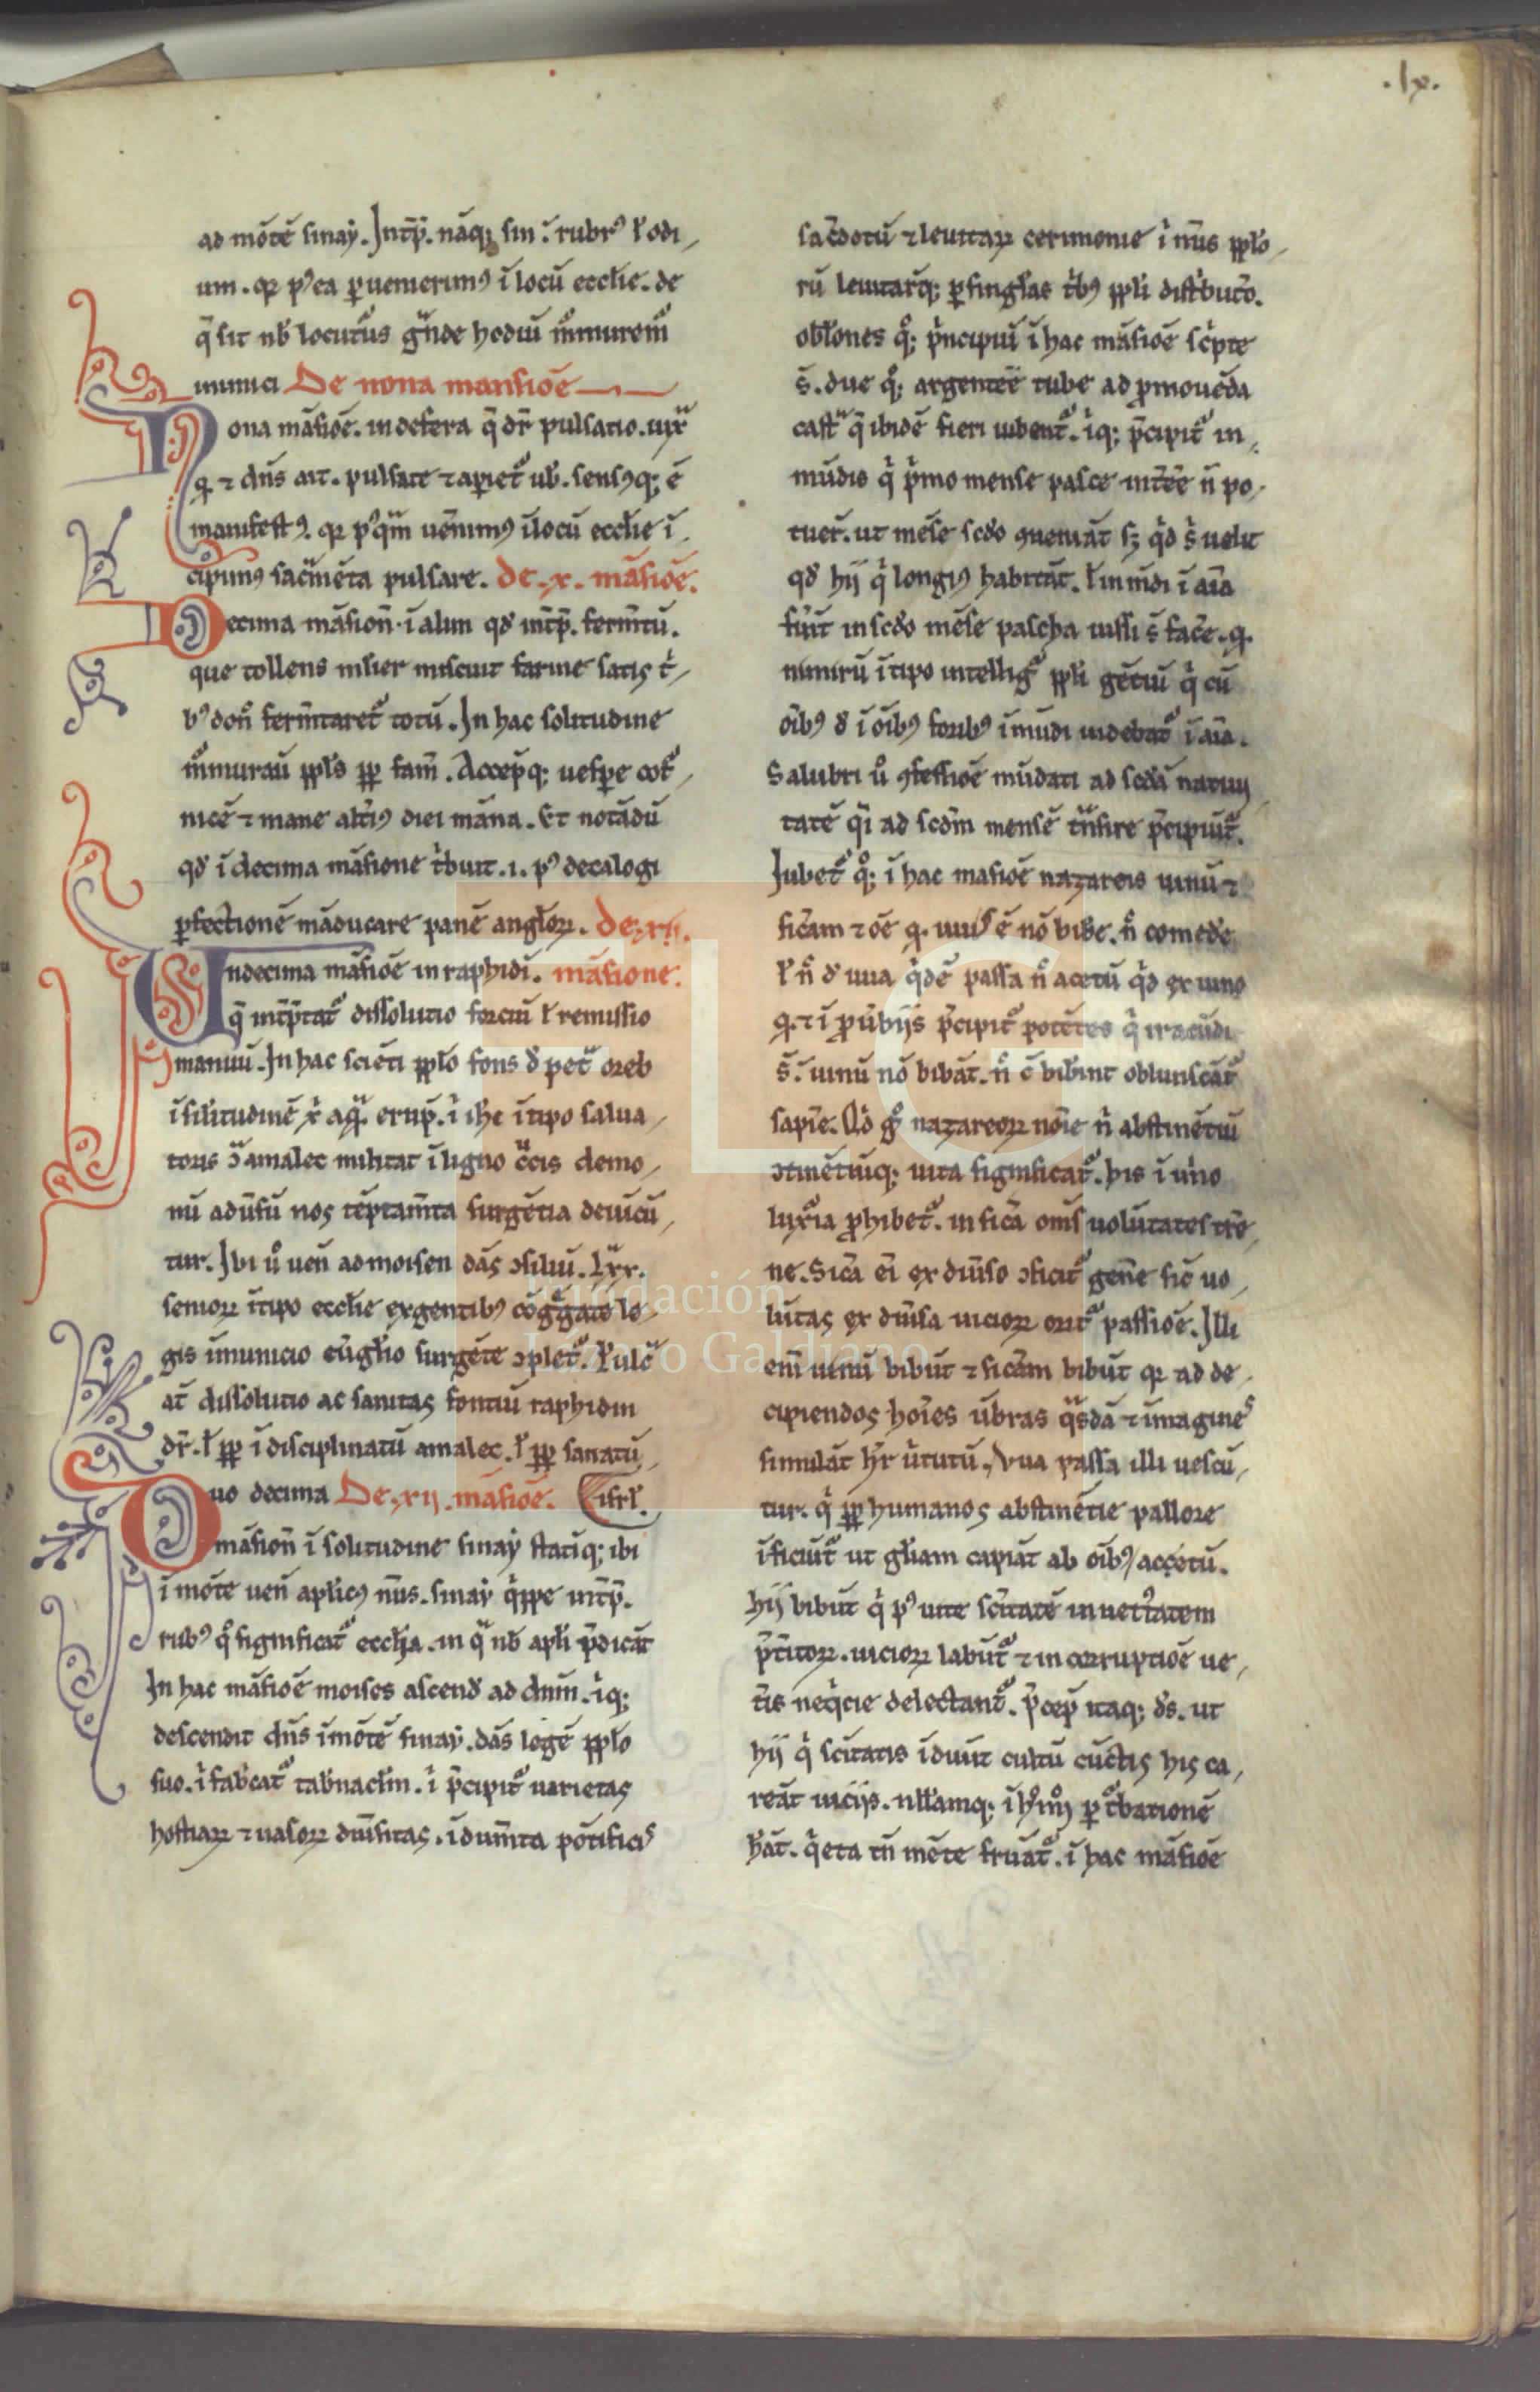 .lx.
ad mōtē sinaẏ. Intp̄. nāq; sin ĩ rubr⁹ ł odi
um. qr p⁹ea ꝑuenerim⁹ ĩ locū eccłie. de
q̄ sit nƀ locutur͛us
mimici De nona mansiōē
Nona māsiōē. in defera q̄ dr̄ pulsatio. iux͛
q ⁊ dn̄s ait. pulsate ⁊ aꝑiet͛ uƀ. sens⁹q; ē
manifest⁹. qr p⁹q͛m uēnim⁹ ĩ locū eccłie ĩ
cipim⁹ sac͛mēta pulsare. de .x. māsiōē.
Decima māsion̄. ĩ alim qđ intp̄. ferm̄tū.
que tollens młier miscuit farine satis t͛
b⁹ don̄ ferm̄taret͛ totū. In hac solitudine
m͛muraū ppłs ꝓp fam̄. Accep̄q; uesꝑe cot͛
nicē ⁊ mane alt͛i⁹ diei māna. Et notādū
qđ ĩ decima māsione t͛buit. i. p⁹ decalogi
ꝑfectionē māducare panē angłoꝝ. de .xii.
Undecima māsiōē in raphidĩ. māsione.
q̄ intp̄tat͛ dissolutio forciū ł remissio
manuū. In hac sciēti ppło fons đ pet͛ oreb
ĩ siłitudinē x͛ aq͛ erup̄. ĩ ih̄c ĩ tipo salua
toris ɔ͛ amalec militat ĩ ligno c͛cis demo
nū aduersū nos tēptam̄ta surgētia deuĩcū
tur. Ibi u͛ uen̄ ad moisen dās ɔsiliū. Lxx.
senioꝝ ĩ tipo eccłie ex gentib⁹ cōg͛gate le
gis ĩmunicio eūgłio surgēte ɔplet͛.
at̄ dissolutio ac sanitas fontiū raphidin
dr̄. ł ꝓp ĩ disciplinatū amalec. ł ꝓp sanatū
Duo decima De .xii. māsiōē. isrł.
māsion̄ ĩ solitudine sinaẏ statĩq; ibi
ĩ mōte uen̄ apłic⁹ nūs. sinaẏ q͛ppe intp̄.
rub⁹ q͛ significat͛ eccłia. in q͛ nƀ apłi p̄dicāt
In hac māsiōē moises ascenđ ad dnm̄. ĩq;
descendit dn̄s ĩ mōtē sinaẏ. dās legē ppło
suo. ĩ fabͥcat͛ tab̄naclm̄. ĩ p̄cipit͛ uarietas
hostiaꝝ ⁊ uasoꝝ diu̅sitas. ĩdum̄ta pōtifici͛
sac̄dotū ⁊ leuitaꝝ cerimonie ĩ nūs ppło
rū leuitarūq; ꝑ singłas t͛b⁹ ppłi dist͛buc̄o.
obłones q͛; p͛ncipiū ĩ hac māsiōē sc͛pte
s̄. due q͛; argentee tube ad ꝓmouēda
cast͛ q̄ ibidē fieri iubent͛. ĩq; p̄cipit͛ in
mūdis q͛ p͛mo mense pasce intēe n̄ po
tuer̄. ut mēse sc̄do ꝯueniāt sꝫ q͛d s͛ uelit
qđ hij q͛ longi⁹ habitāt. ł inm̄di ĩ aīa
fu͛īt in sc̄do mēse pascha iussi s̄ fac̄e. q.
nimirū ĩ tipo intellig͛ ppłi gētiū q͛ cū
oīb⁹ đ ĩ oīb⁹ forib⁹ ĩmūdi uidebat͛ ĩ aīa.
Salubri u͛ ꝯfessiōē mūdati ad sc̄dā natiui
tatē q͛i ad scdm̄ mensē t͛nsire p̄cipiūt͛.
Iubet͛ q͛; ĩ hac masiōē nazareis uinū ⁊
sic̄am ⁊ oē q. uiuł ē nō bibe. n͛ comeđe
ł n͛ đ uua q͛dē passa n͛ acetū q͛d ex uino
q. ⁊ ĩ ꝓu̅biis p̄cipit͛ potētes q͛ iracūdi
s̄. uinū nō bibāt. n͛ c̄ biƀint obliuiscāt͛
sapie. Q͛d g͛ nazareoꝝ nōīe n͛ abstinētiū
ɔtinētiūq; uita significat͛. his ĩ uino
lux͛ia ꝓhibet͛. in sic̄a oms̄ uolūtates tr̄e
ne. Sic̄a ei̅ ex diu̅so ɔficit͛ gen̄e sic̄ uo
lūtas ex diu̅sa uicioꝝ orit͛ passiōē. Illi
em̄ uinū bibūt ⁊ sic̄am bibūt qr ad de
cipiendos hoīes ūbras q͛sdā ⁊ imagine͛s
simulāt hr̄ u͛tutū. Uua passa illi uescū
tur. q͛ ꝓp humanos abstinētie pallore
ĩficiūt͛ ut głiam capiāt ab oīb⁹ accetū.
hij bibūt q͛ p⁹ uite sc̄itatē in uet͛tatem
p̄t̄itoꝝ. uicioꝝ labūt͛ ⁊ in corruptiōē ue
t̄is neq͛cie delectant͛. p̄cep̄ itaq; đs. ut
hij q͛ sc̄itatis ĩduūt cultū cūctis his ca
reāt uiciis. nłłamq; ĩ h͛moi ꝑt͛bationē
h̄āt. q͛eta tn̄ mēte fruāt͛. ĩ hac māsiōē
Fundación
Lázaro Galdiano